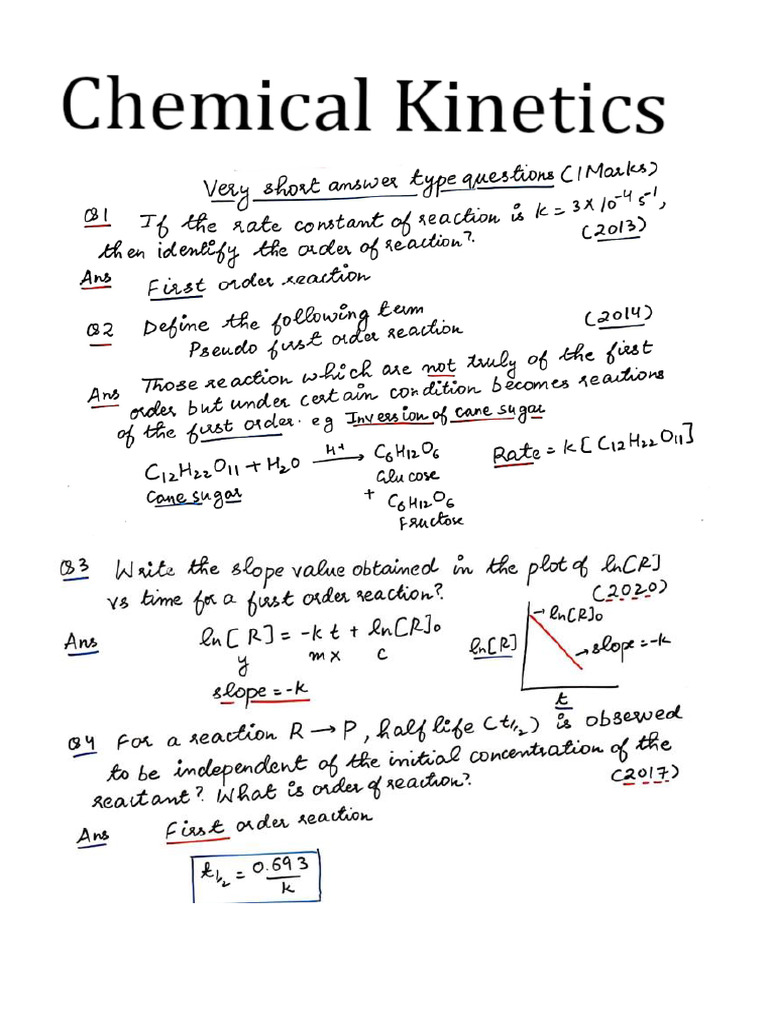 Chemical Kinetics
Very short answer type questions (1 Marks)
Q1 If the rate constant of reaction is k = 3 × 10⁻⁴ s⁻¹,
then identify the order of reaction?. (2013)
Ans First order reaction
Q2 Define the following term (2014)
Pseudo first order reaction
Ans Those reaction which are not truly of the first
order but under certain condition becomes reactions
of the first order. eg Inversion of cane sugar
C₁₂H₂₂O₁₁ + H₂O —H⁺→ C₆H₁₂O₆ Rate = k [C₁₂H₂₂O₁₁]
Cane sugar Glucose
+ C₆H₁₂O₆
Fructose
Q3 Write the slope value obtained in the plot of ln[R]
vs time for a first order reaction?. (2020)
Ans ln[R] = -k t + ln[R]₀
y m x c
slope = -k
ln[R]₀
ln[R]
slope = -k
t
Q4 For a reaction R → P, half life (t₁/₂) is observed
to be independent of the initial concentration of the
reactant? What is order of reaction?. (2017)
Ans First order reaction
t₁/₂ = 0.693/k